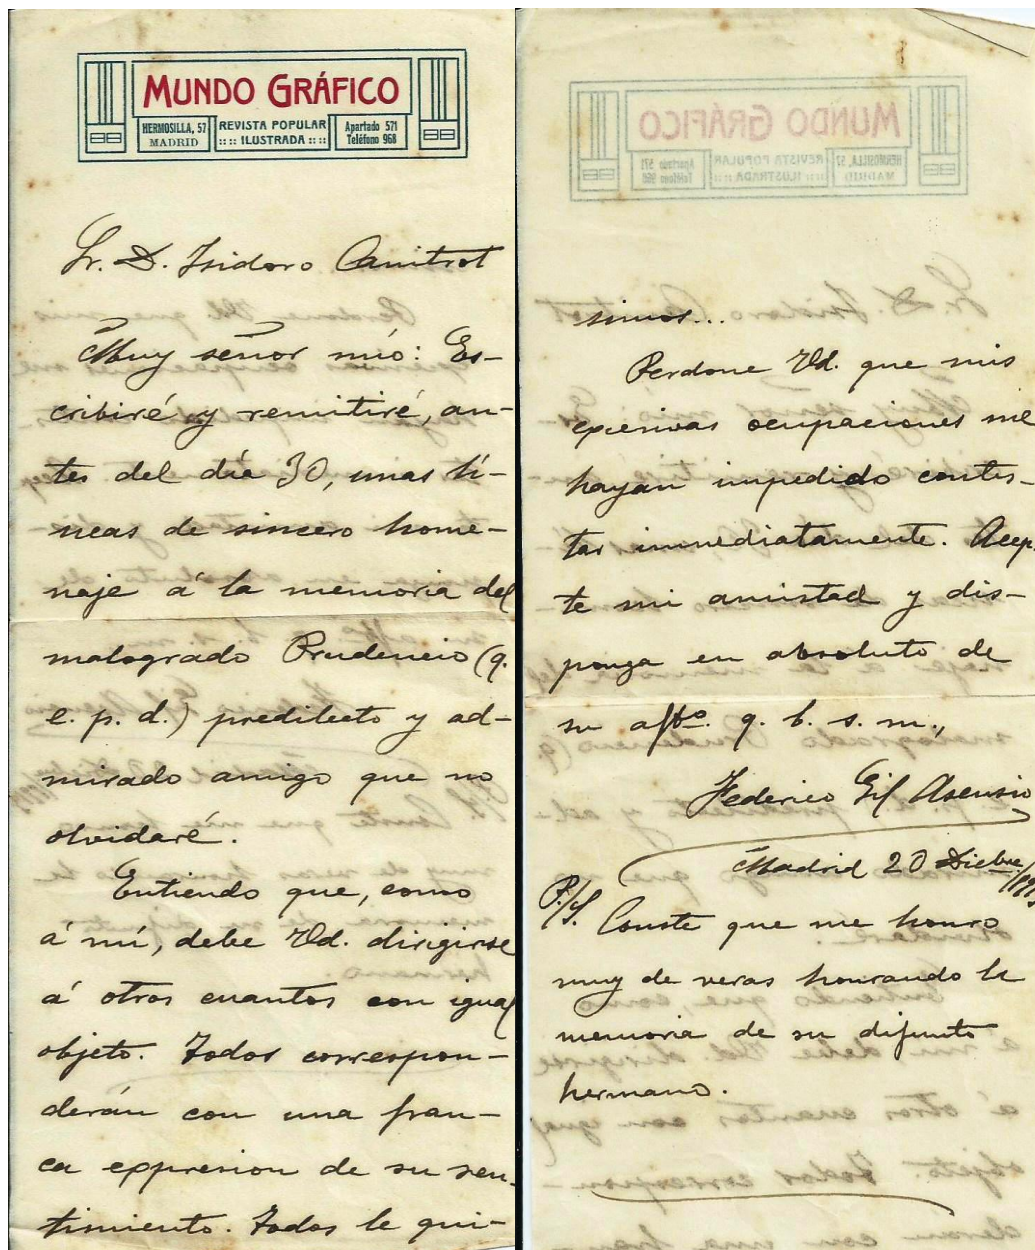 MUNDO GRÁFICO
HERMOSILLA, 57
MADRID
REVISTA POPULAR
:::: ILUSTRADA ::::
Apartado 571
Teléfono 968
Sr. D. Isidoro Canitrot
Muy señor mío: Es-
cribiré y remitiré, an-
tes del día 30, unas lí-
neas de sincero home-
naje á la memoria del
malogrado Prudencio (q.
e. p. d.) predilecto y ad-
mirado amigo que no
olvidaré.
Entiendo que, como
á mí, debe Vd. dirigirse
á otros cuantos con igual
objeto. Todos correspon-
derán con una fran-
ca expresion de su sen-
timiento. Todos le qui-
simos...
Perdone Vd. que mis
excesivas ocupaciones me
hayan impedido contes-
tar inmediatamente. Acep-
te mi amistad y dis-
ponga en absoluto de
su affmo. q. b. s. m.,
Federico Gil Asensio
Madrid 20 Dicbre
P./S. Conste que me honro
muy de veras honrando la
memoria de su difunto
hermano.